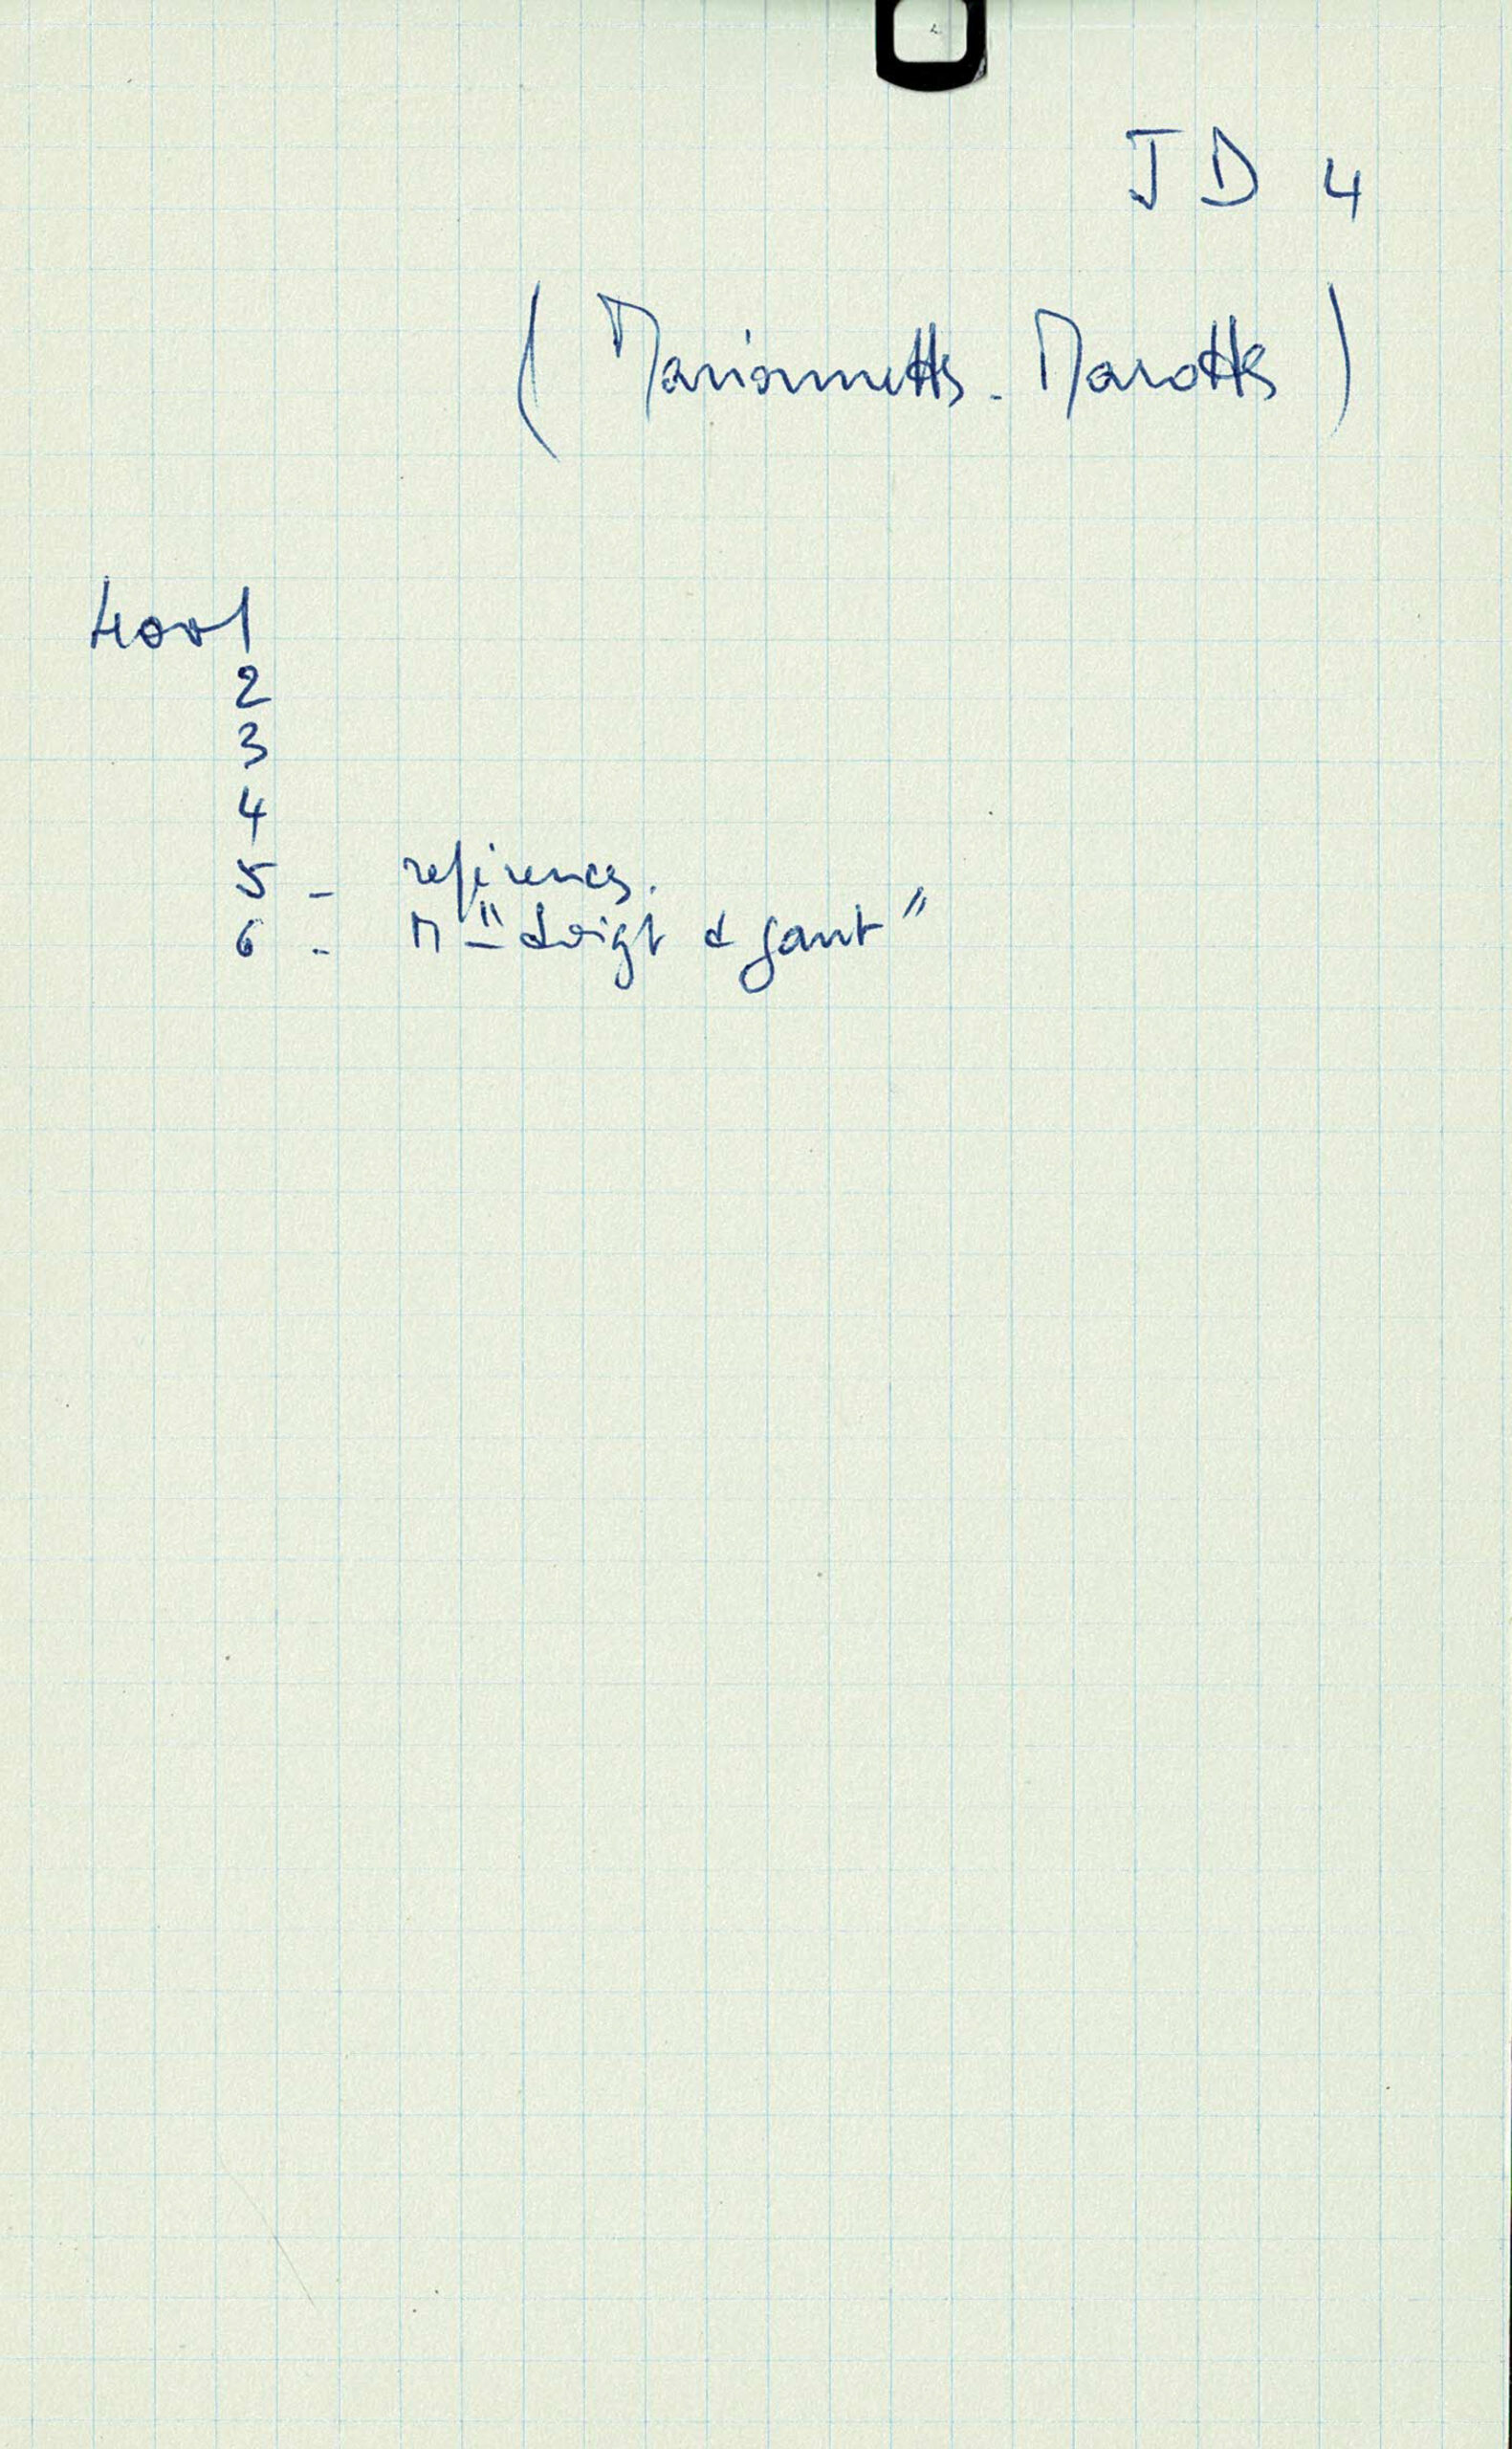 JD 4
(Marionnettes - Marottes)
4001
2
3
4
5 - références.
6 - M - "doigt & gant"